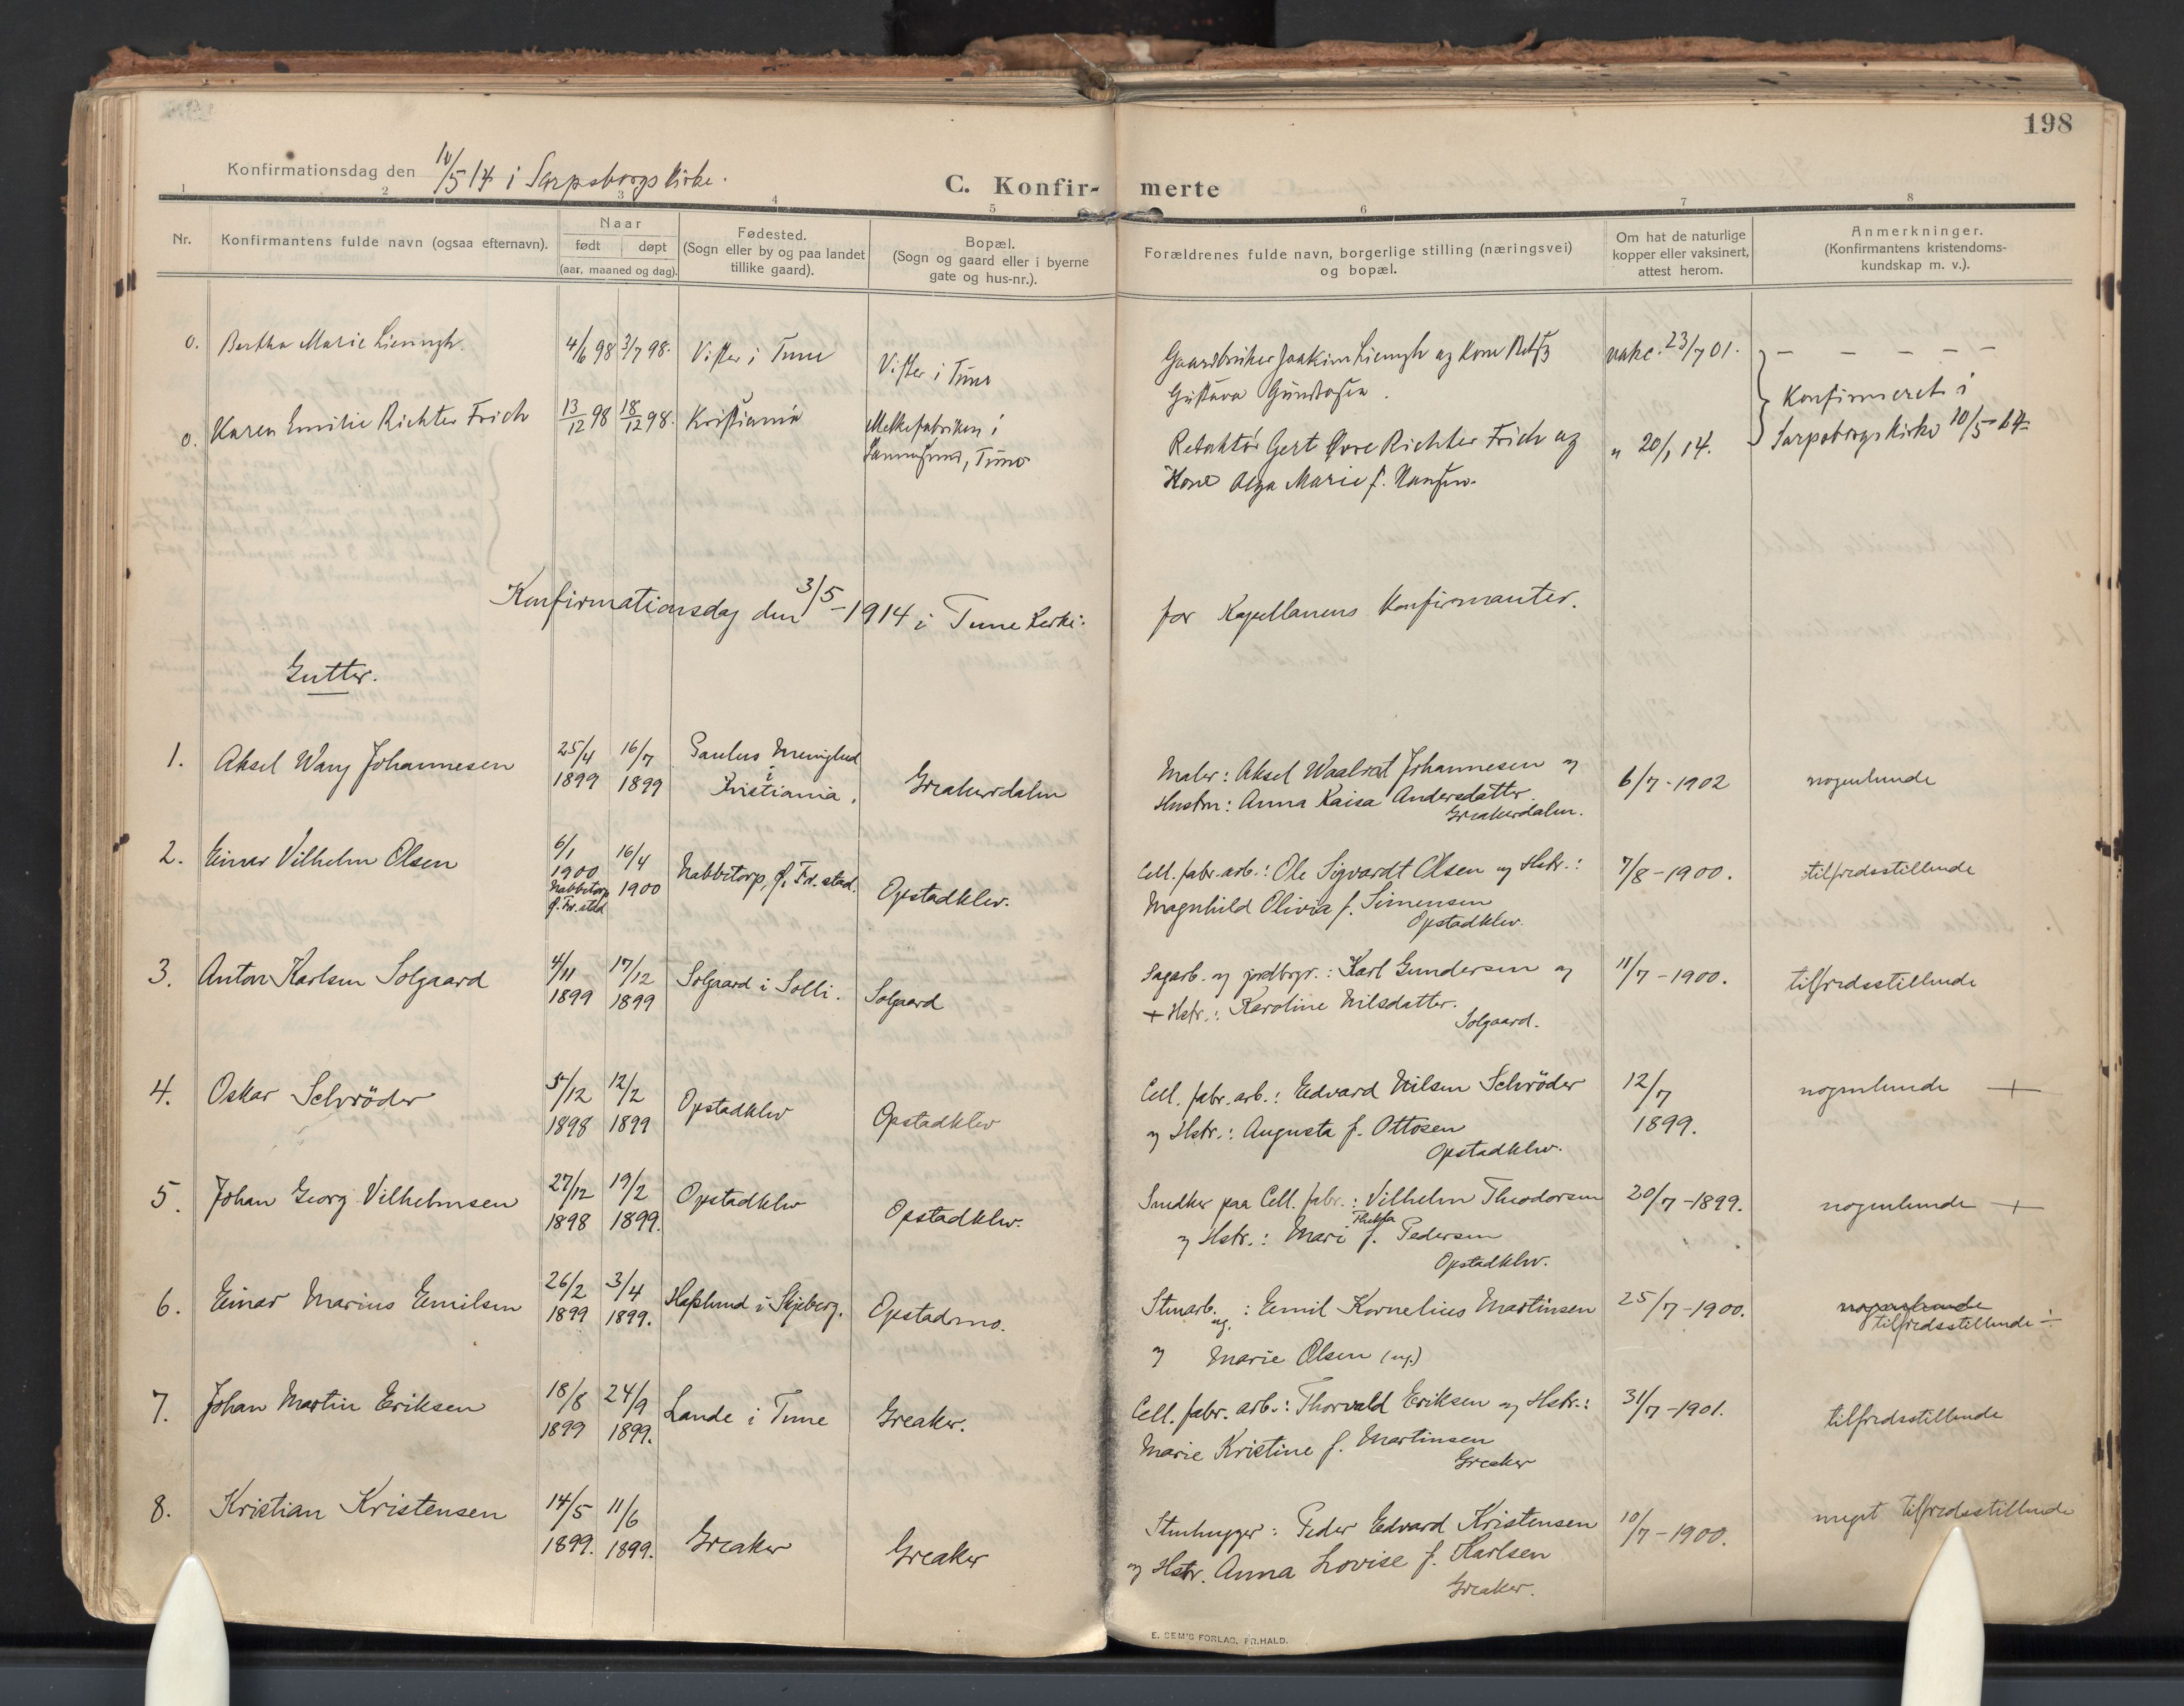 198
Konfirmationsdag den 10/5 14 i Sarpsborgs kirke.
C. Konfir- merte
1 2 3 4 5 6 7 8
Nr.
Konfirmantens fulde navn (ogsaa efternavn).
Naar
født døpt
(aar, maaned og dag).
Fødested.
(Sogn eller by og paa landet
tillike gaard).
Bopæl.
(Sogn og gaard eller i byerne
gate og hus-nr.).
Forældrenes fulde navn, borgerlige stilling (næringsvei)
og bopæl.
Om hat de naturlige
kopper eller vaksinert,
attest herom.
Anmerkninger.
(Konfirmantens kristendoms-
kundskap m. v.).
0. Bertha Marie 4/6 98 3/7 98. Vister i Tune
Vister i Tune
Gaardbruker Joakim og Kone
Gustava
vakc. 23/7 01.
— — — — —
0. Karen Emilie Richter Frich 13/12 98 18/12 98. Kristiania
Melkefabriken i
Sannesund, Tune
Redaktør Gert Richter Frich og
Kone Olga Marie f. Hansen.
" 20/1 14.
Konfirmeret i
Sarpsborgs kirke 10/5 14
Konfirmationsdag den 3/5-1914 i Tune kerke. for Kapellanens Konfirmanter.
Gutter.
1. Aksel Wang Johannesen
25/4 1899
16/7 1899
Paulus Menighed
i
Kristiania.
Greakerdalen
Maler: Aksel Johannesen og
Hustru: Anna Kaisa Andersdatter.
Greakerdalen.
6/7-1902
nogenlunde
2. Einar Vilhelm Olsen
6/1 1900
Nabbetorp
Ø. Fr.stad
16/4 1900
Nabbetorp, Ø. Fr.stad.
Opstadklev.
Cell. fabr. arb.: Ole Sigvardt Olsen og Hstr.:
Magnhild Olivia f. Simensen
Opstadklev.
7/8-1900.
tilfredsstillende
3. Anton Karlsen Solgaard
4/11 1899
17/12 1899
Solgaard i Solli.
Solgaard
Sagarb. og jordbrgr.: Karl Gundersen og
+ Hstr.: Karoline Nilsdatter.
Solgaard.
11/7-1900.
tilfredsstillende
4. Oskar Schröder
5/12 1898
12/2 1899
Opstadklev
Opstadklev
Cell. fabr. arb.: Edvard Nilsen Schröder
og Hstr.: Augusta f. Ottosen
Opstadklev.
12/7
1899.
nogenlunde +
5. Johan Georg Vilhelmsen
27/12 1898
19/2 1899.
Opstadklev
Opstadklev.
Snedker paa Cell. fabr.: Vilhelm Theodorsen
og Hstr.: Mari f. Pedersen
Opstadklev.
20/7-1899.
nogenlunde +
6. Einar Marius Emilsen
26/2 1899
3/4 1899.
Hafslund i Skjeberg.
Opstadmo.
Stenarb. ug. : Emil Kornelius Martinsen
og Marie Olsen (ug.)
25/7-1900.
nogenlunde
tilfredsstillende ÷
7. Johan Martin Eriksen
18/8 1899
24/9 1899.
Lande i Tune
Greaker.
Cell. fabr. arb.: Thorvald Eriksen og Hstr.:
Marie Kristine f. Martinsen
Greaker
31/7-1901.
tilfredsstillende
8. Kristian Kristensen
14/5 1899.
11/6 1899.
Greaker
Greaker
Stenhugger: Peder Edvard Kristensen
og Hstr. Anna Lovise f. Karlsen
Greaker.
10/7-1900.
meget tilfredsstillende
E. SEM'S FORLAG, FR.HALD.